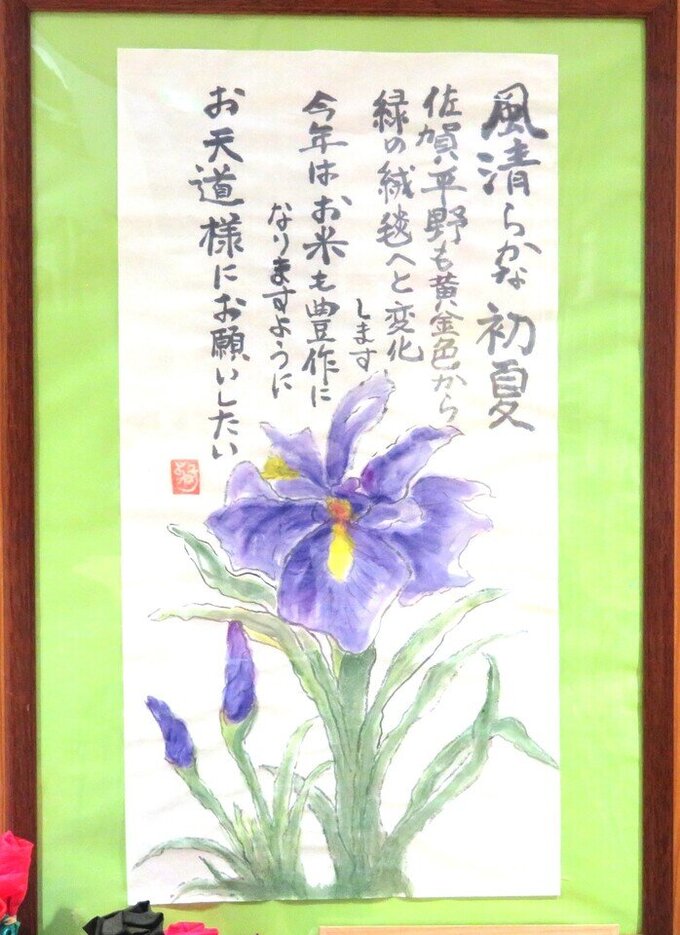 風清らかな初夏
佐賀平野も黄金色から
緑の絨毯へと変化
します
今年はお米も豊作に
なりますように
お天道様にお願いしたい